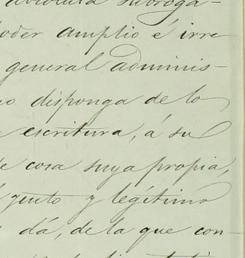 absoluta subroga-
poder amplio é irre
general adminis-
disponga de lo
escritura, á su
de cosa suya propia,
justo y legítimo
dá, de la que con-